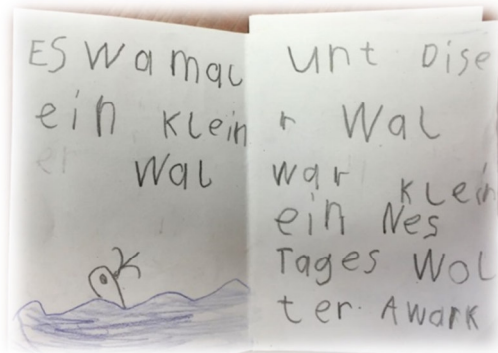 ES Wa mal
ein klein
er Wal
unt Dise
r Wal
war klein
ein Nes
Tages Wol
ter. AwarK